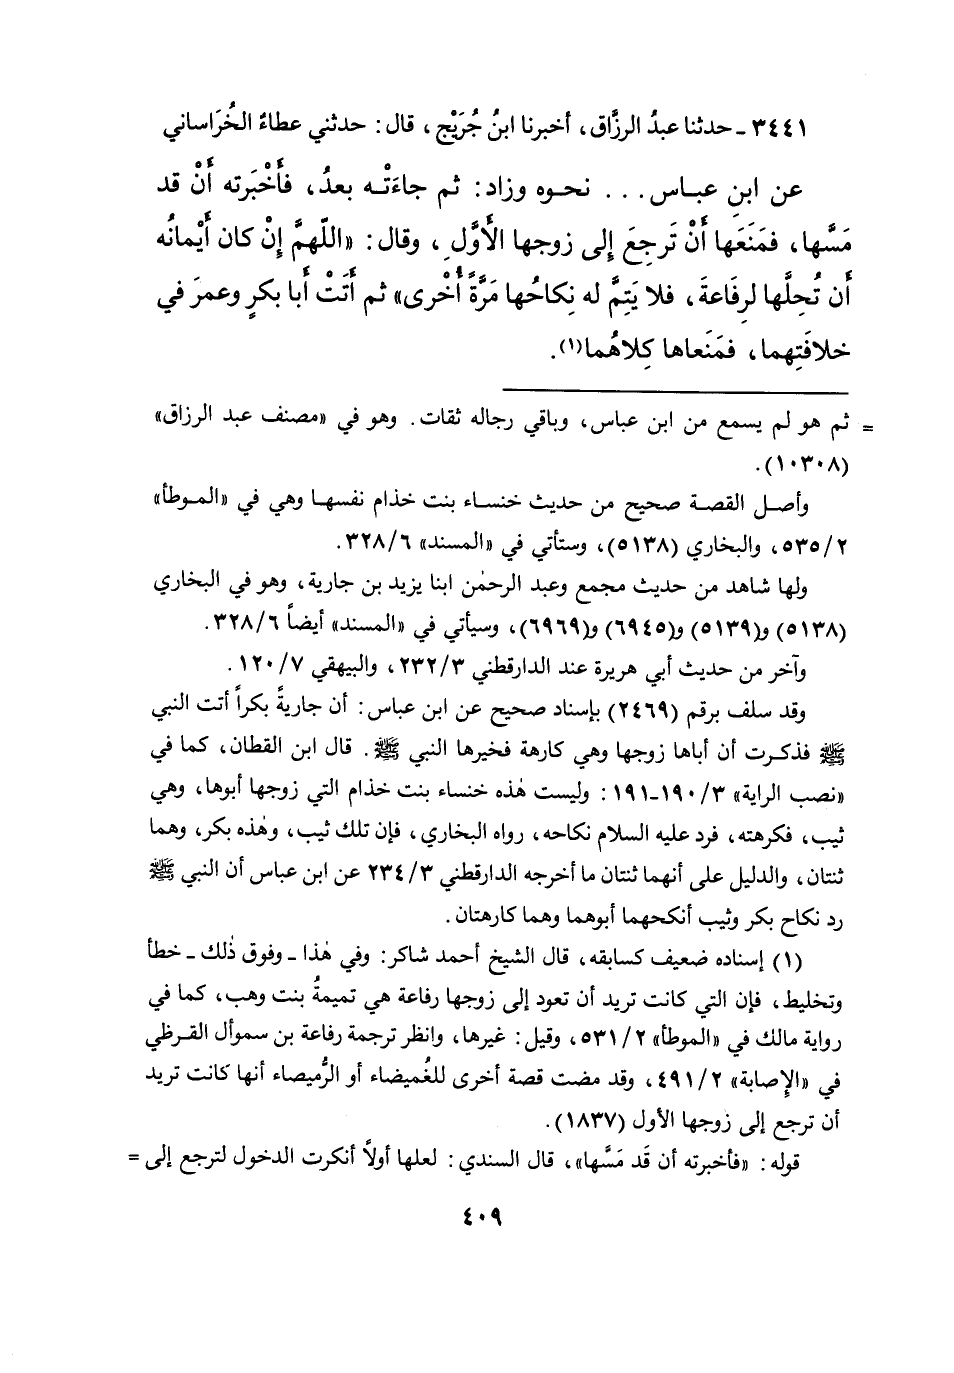 ٣٤٤١ ـ حدثنا عبدُ الرزَّاق، أخبرنا ابنُ جُرَيْج، قال: حدثني عطاءٌ الخُرَاساني
عن ابنِ عبـاس... نحـوه وزاد: ثـم جاءَتْـه بعدُ، فأَخْبَرته أَنْ قد
مَسَّها، فمَنَعَها أَنْ تَرجِعَ إلى زوجها الأَوَّلِ، وقال: «اللّهمَّ إِنْ كان أَيْمانُه
أَن تُحِلَّها لرِفَاعةَ، فلا يَتِمَّ له نِكاحُها مَرَّةً أُخْرى» ثم أَتَتْ أَبا بكرٍ وعمرَ في
خلافَتِهما، فمَنَعاها كِلاهُما(١).
= ثم هو لم يسمع من ابن عباس، وباقي رجاله ثقات. وهو في «مصنف عبد الرزاق»
(١٠٣٠٨).
وأصـل القصـة صحيح من حديث خنسـاء بنت خذام نفسهـا وهي في «المـوطأ»
٥٣٥/٢، والبخاري (٥١٣٨)، وستأتي في «المسند» ٣٢٨/٦.
ولها شاهد من حديث مجمع وعبد الرحمٰن ابنا يزيد بن جارية، وهو في البخاري
(٥١٣٨) و(٥١٣٩) و(٦٩٤٥) و(٦٩٦٩)، وسيأتي في «المسند» أيضاً ٣٢٨/٦.
وآخر من حديث أبي هريرة عند الدارقطني ٢٣٢/٣، والبيهقي ١٢٠/٧.
وقد سلف برقم (٢٤٦٩) بإسناد صحيح عن ابن عباس: أن جاريةً بكراً أتت النبي
ﷺ فذكـرت أن أباها زوجها وهي كارهة فخيرها النبي ﷺ. قال ابن القطان، كما في
«نصب الراية» ١٩٠/٣-١٩١: وليست هٰذه خنساء بنت خذام التي زوجها أبوها، وهي
ثيب، فكرهته، فرد عليه السلام نكاحه، رواه البخاري، فإن تلك ثيب، وهٰذه بكر، وهما
ثنتان، والدليل على أنهما ثنتان ما أخرجه الدارقطني ٢٣٤/٣ عن ابن عباس أن النبي ﷺ
رد نكاح بكر وثيب أنكحهما أبوهما وهما كارهتان.
(١) إسناده ضعيف كسابقه، قال الشيخ أحمد شاكر: وفي هٰذا ـ وفوق ذٰلك ـ خطأ
وتخليط، فإن التي كانت تريد أن تعود إلى زوجها رفاعة هي تميمةُ بنت وهب، كما في
رواية مالك في «الموطأ» ٥٣١/٢، وقيل: غيرها، وانظر ترجمة رفاعة بن سموأل القـرظي
في «الإصابة» ٤٩١/٢، وقد مضت قصة أخرى للغُميضاء أو الرُّميصاء أنها كانت تريد
أن ترجع إلى زوجها الأول (١٨٣٧).
قوله: «فأخبرته أن قَد مَسَّها»، قال السندي: لعلها أولاً أنكرت الدخول لترجع إلى =
٤٠٩